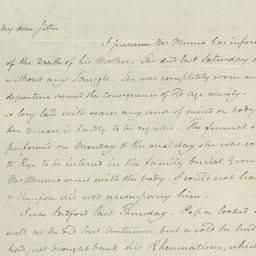 My dear Sister
I presume Mr Munro has inform
of the Death of his Mother. She died last Saturday
without any Struggle. She was completely worn
departure seemed the consequence of old age merely.
so long laid with scarce any use of mind or body
her decease is hardly to be regretted. The funeral
performed on Monday & the next day she was co
to Rye to be interred in the family burial Groun
Mr Munro went with the body. I could not lea
& therefore did not accompany him.
I saw Bedford last Thursday. Papa looked
well as he did last autumn, but a cold he had
had just brought back his Rheumatism, which